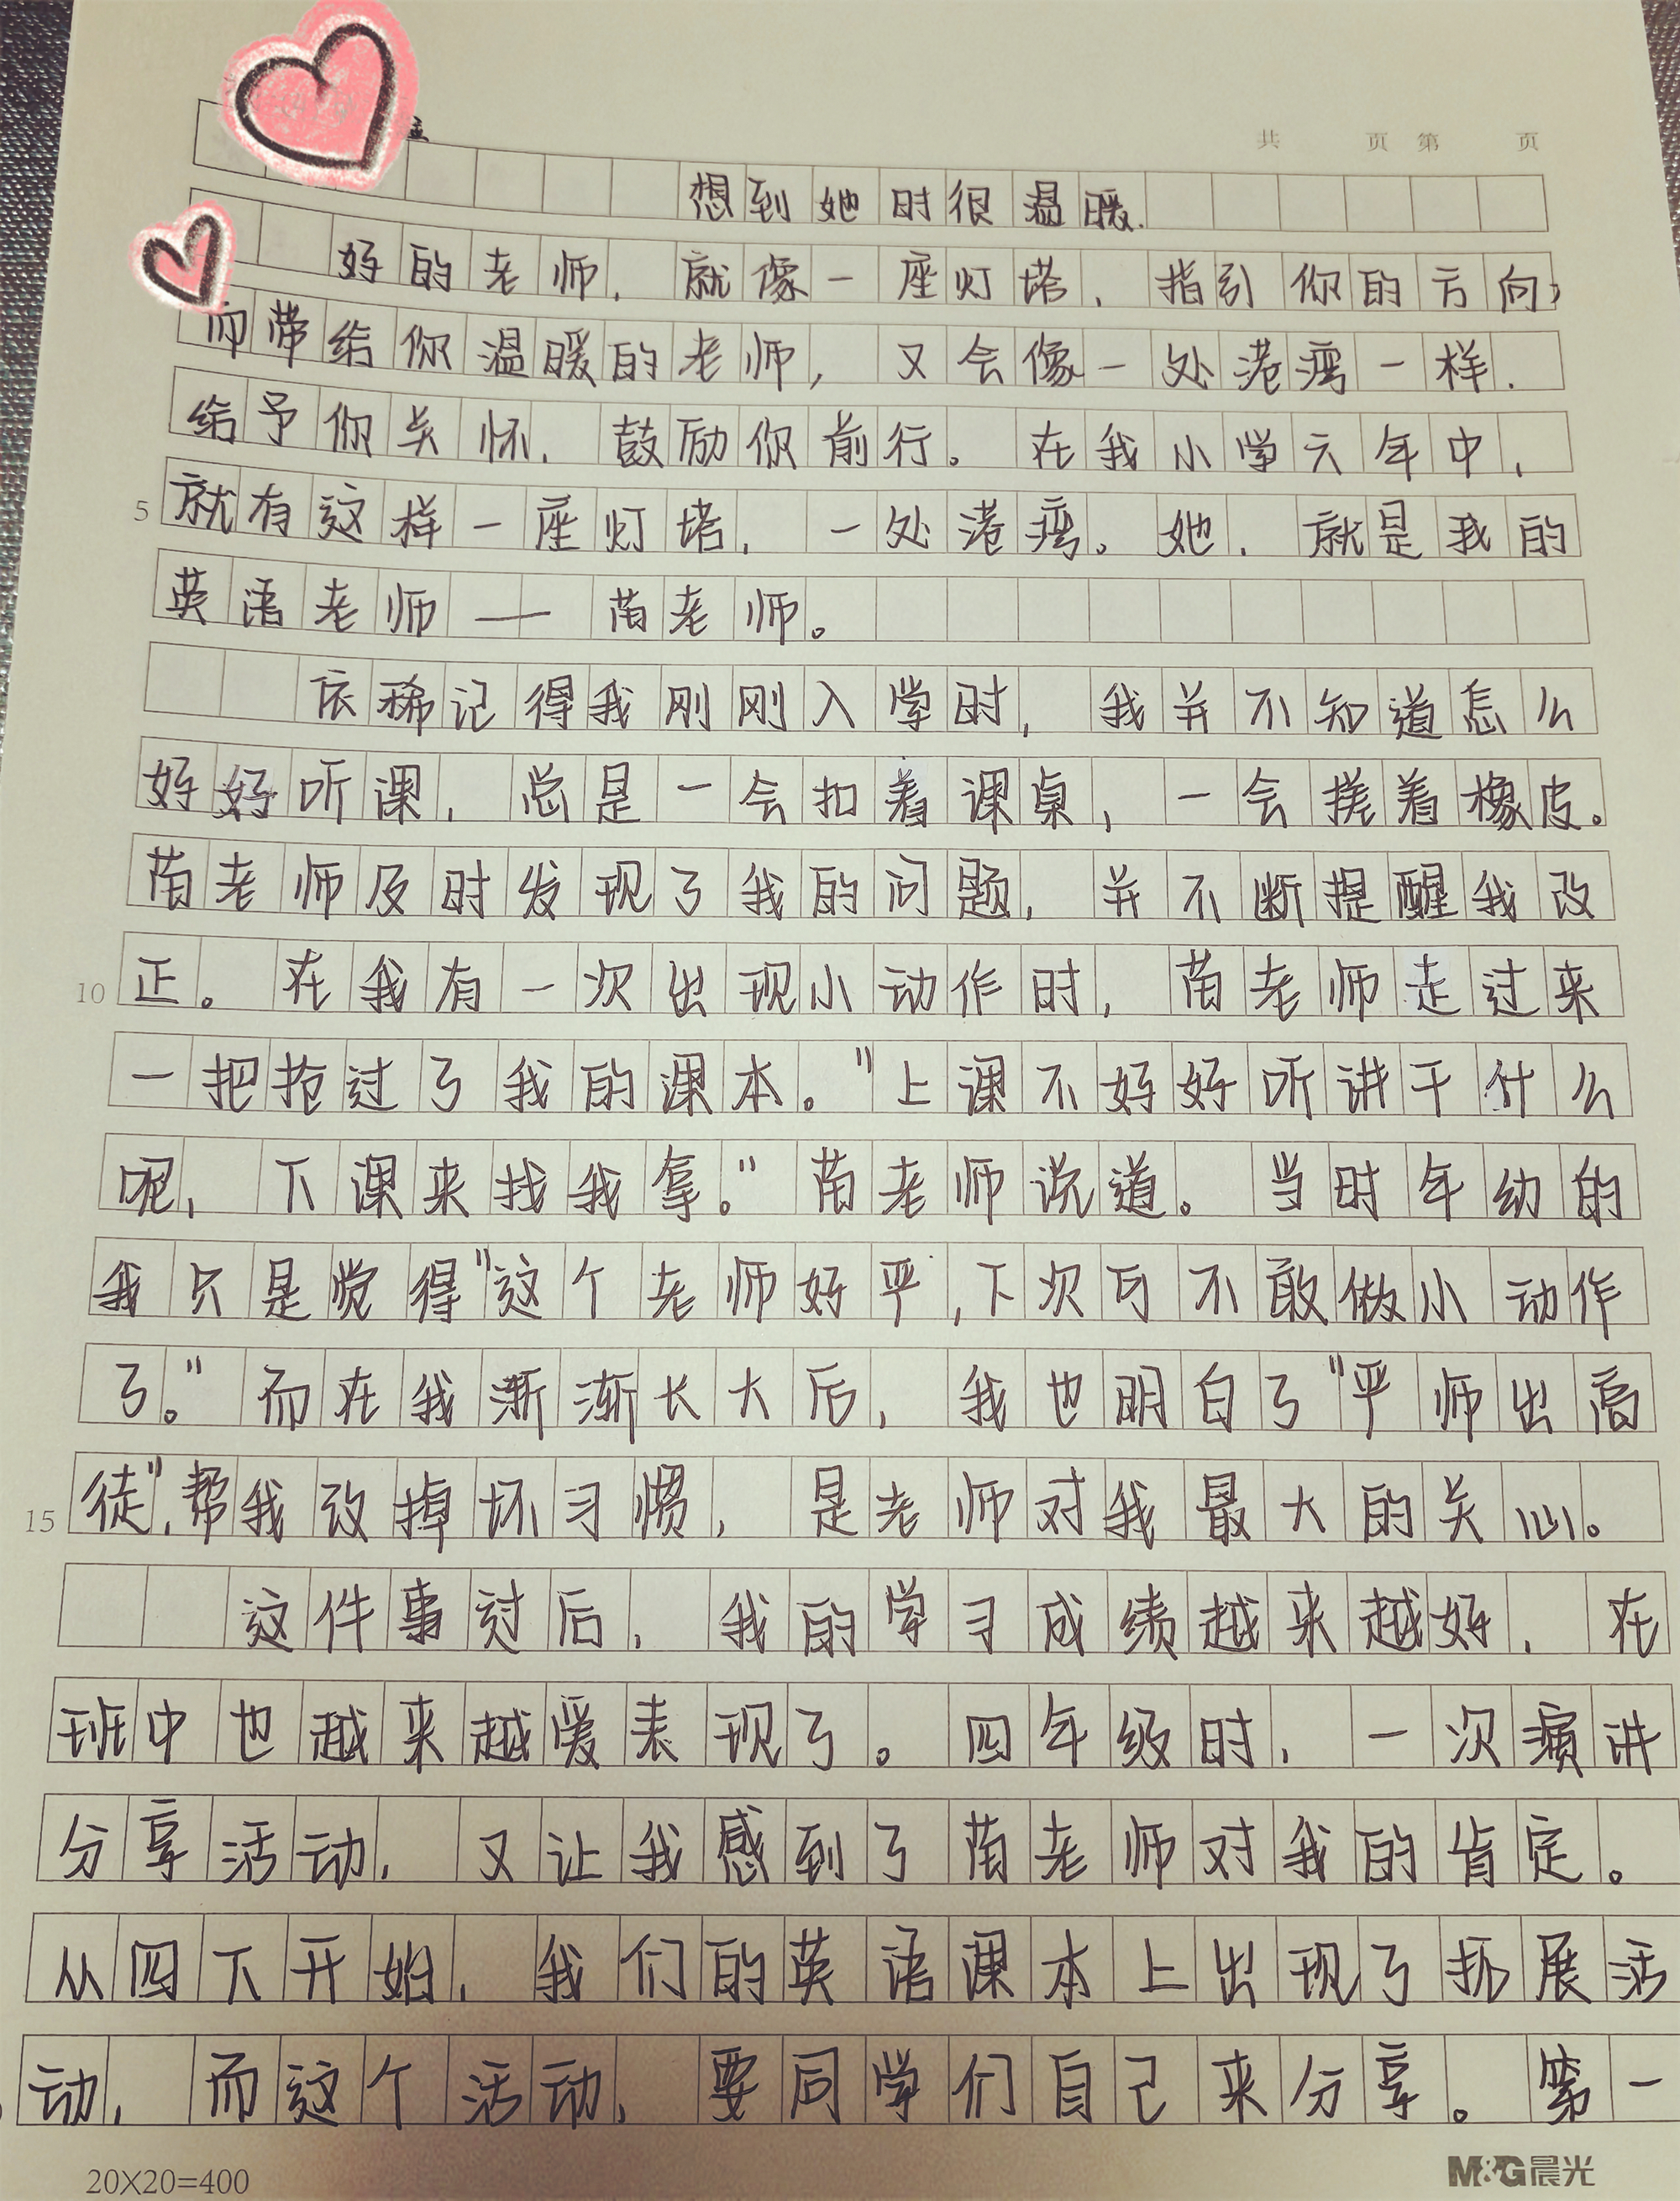 共 页 第 页
想到她时很温暖.
好的老师，就像一座灯塔，指引你的方向，
而带给你温暖的老师，又会像一处港湾一样，
给予你关怀，鼓励你前行。在我小学六年中，
5 就有这样一座灯塔，一处港湾。她，就是我的
英语老师——苗老师。
依稀记得我刚刚入学时，我并不知道怎么
好好听课，总是一会扣着课桌，一会搓着橡皮。
苗老师及时发现了我的问题，并不断提醒我改
10 正。在我有一次出现小动作时，苗老师走过来
一把抢过了我的课本。"上课不好好听讲干什么
呢，下课来找我拿。"苗老师说道。当时年幼的
我只是觉得"这个老师好严，下次可不敢做小动作
了。"而在我渐渐长大后，我也明白了"严师出高
15 徒"，帮我改掉坏习惯，是老师对我最大的关心。
这件事过后，我的学习成绩越来越好，在
班中也越来越爱表现了。四年级时，一次演讲
分享活动，又让我感到了苗老师对我的肯定。
从四下开始，我们的英语课本上出现了拓展活
动，而这个活动，要同学们自己来分享。第一
20X20=400 M&G晨光